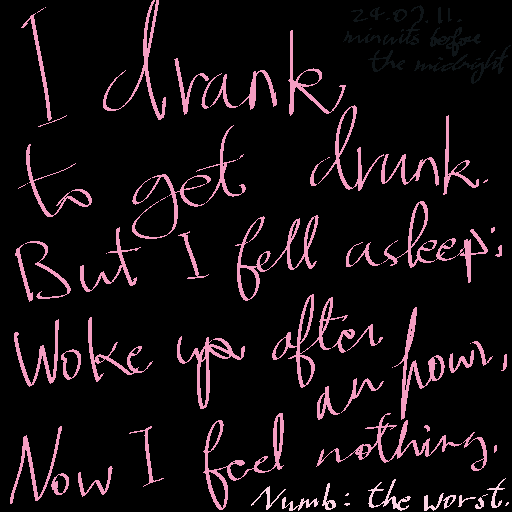 24.07.11.
minuits before
the midnight
I drank,
to get drunk.
But I fell asleep;
Woke up after
an hour,
Now I feel nothing.
Numb: the worst.